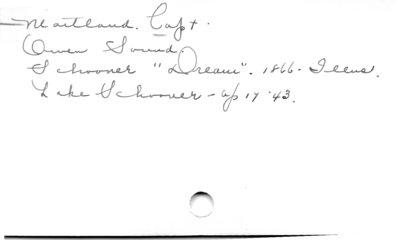 Maitland. Capt.
Owen Sound.
Schooner "Dream". 1866 - Illus.
Lake Schooner - ap 17 '43.